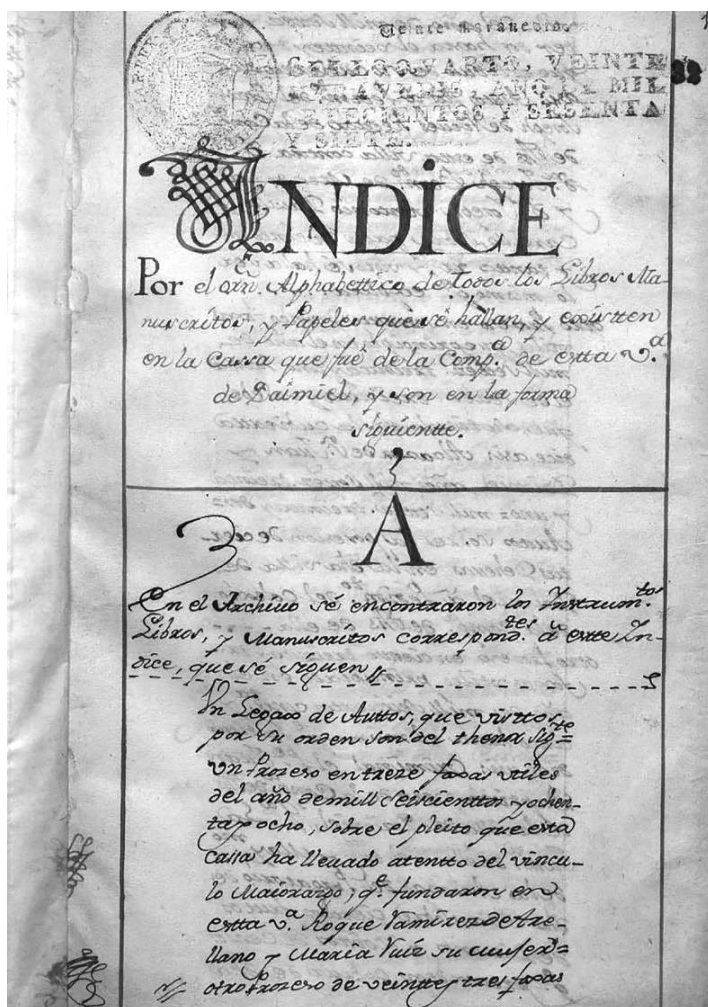 Veinte maravedis.
SELLO QVARTO, VEINTE
MARAVEDIS, AÑO DE MIL
SETECIENTOS Y SESENTA
Y SIETE.
INDICE
Por el orn. Alphabettico de todos los Libros Ma-
nuscritos, y Papeles que sé hallan, y existten
en la Cassa que fué de la Comp.ª de estta v.ª
de Daimiel, y son en la forma
siguientte.
A
En el Archivo sé encontraron los Instrum.tos
Libros, y Manuscritos correspond.tes á estte In-
dice, que sé siguen
Un Legaxo de Auttos, que visttos
por su orden son del thenor sig.te =
Un Prozeso en treze foxas utiles
del año de mill Seiscienttos y ochen-
ta y ocho, sobre el pleito que esta
cassa ha llevado atentto del vincu-
lo Maiorazgo, q.e fundaron en
estta v.ª Roque Ramirez de Are-
llano y Maria Ruiz su muxer =
otro Prozeso de veinte y tres foxas